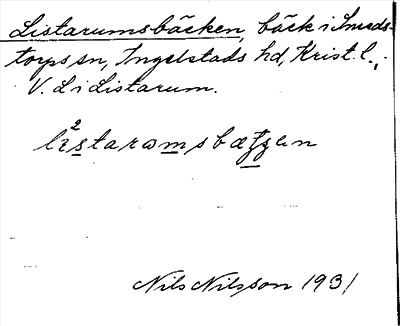 Listarumsbäcken, bäck i Smeds-
torps sn, Ingelstads hd, Krist. l.,
V. L i Listarum.
Nils Nilsson 1931